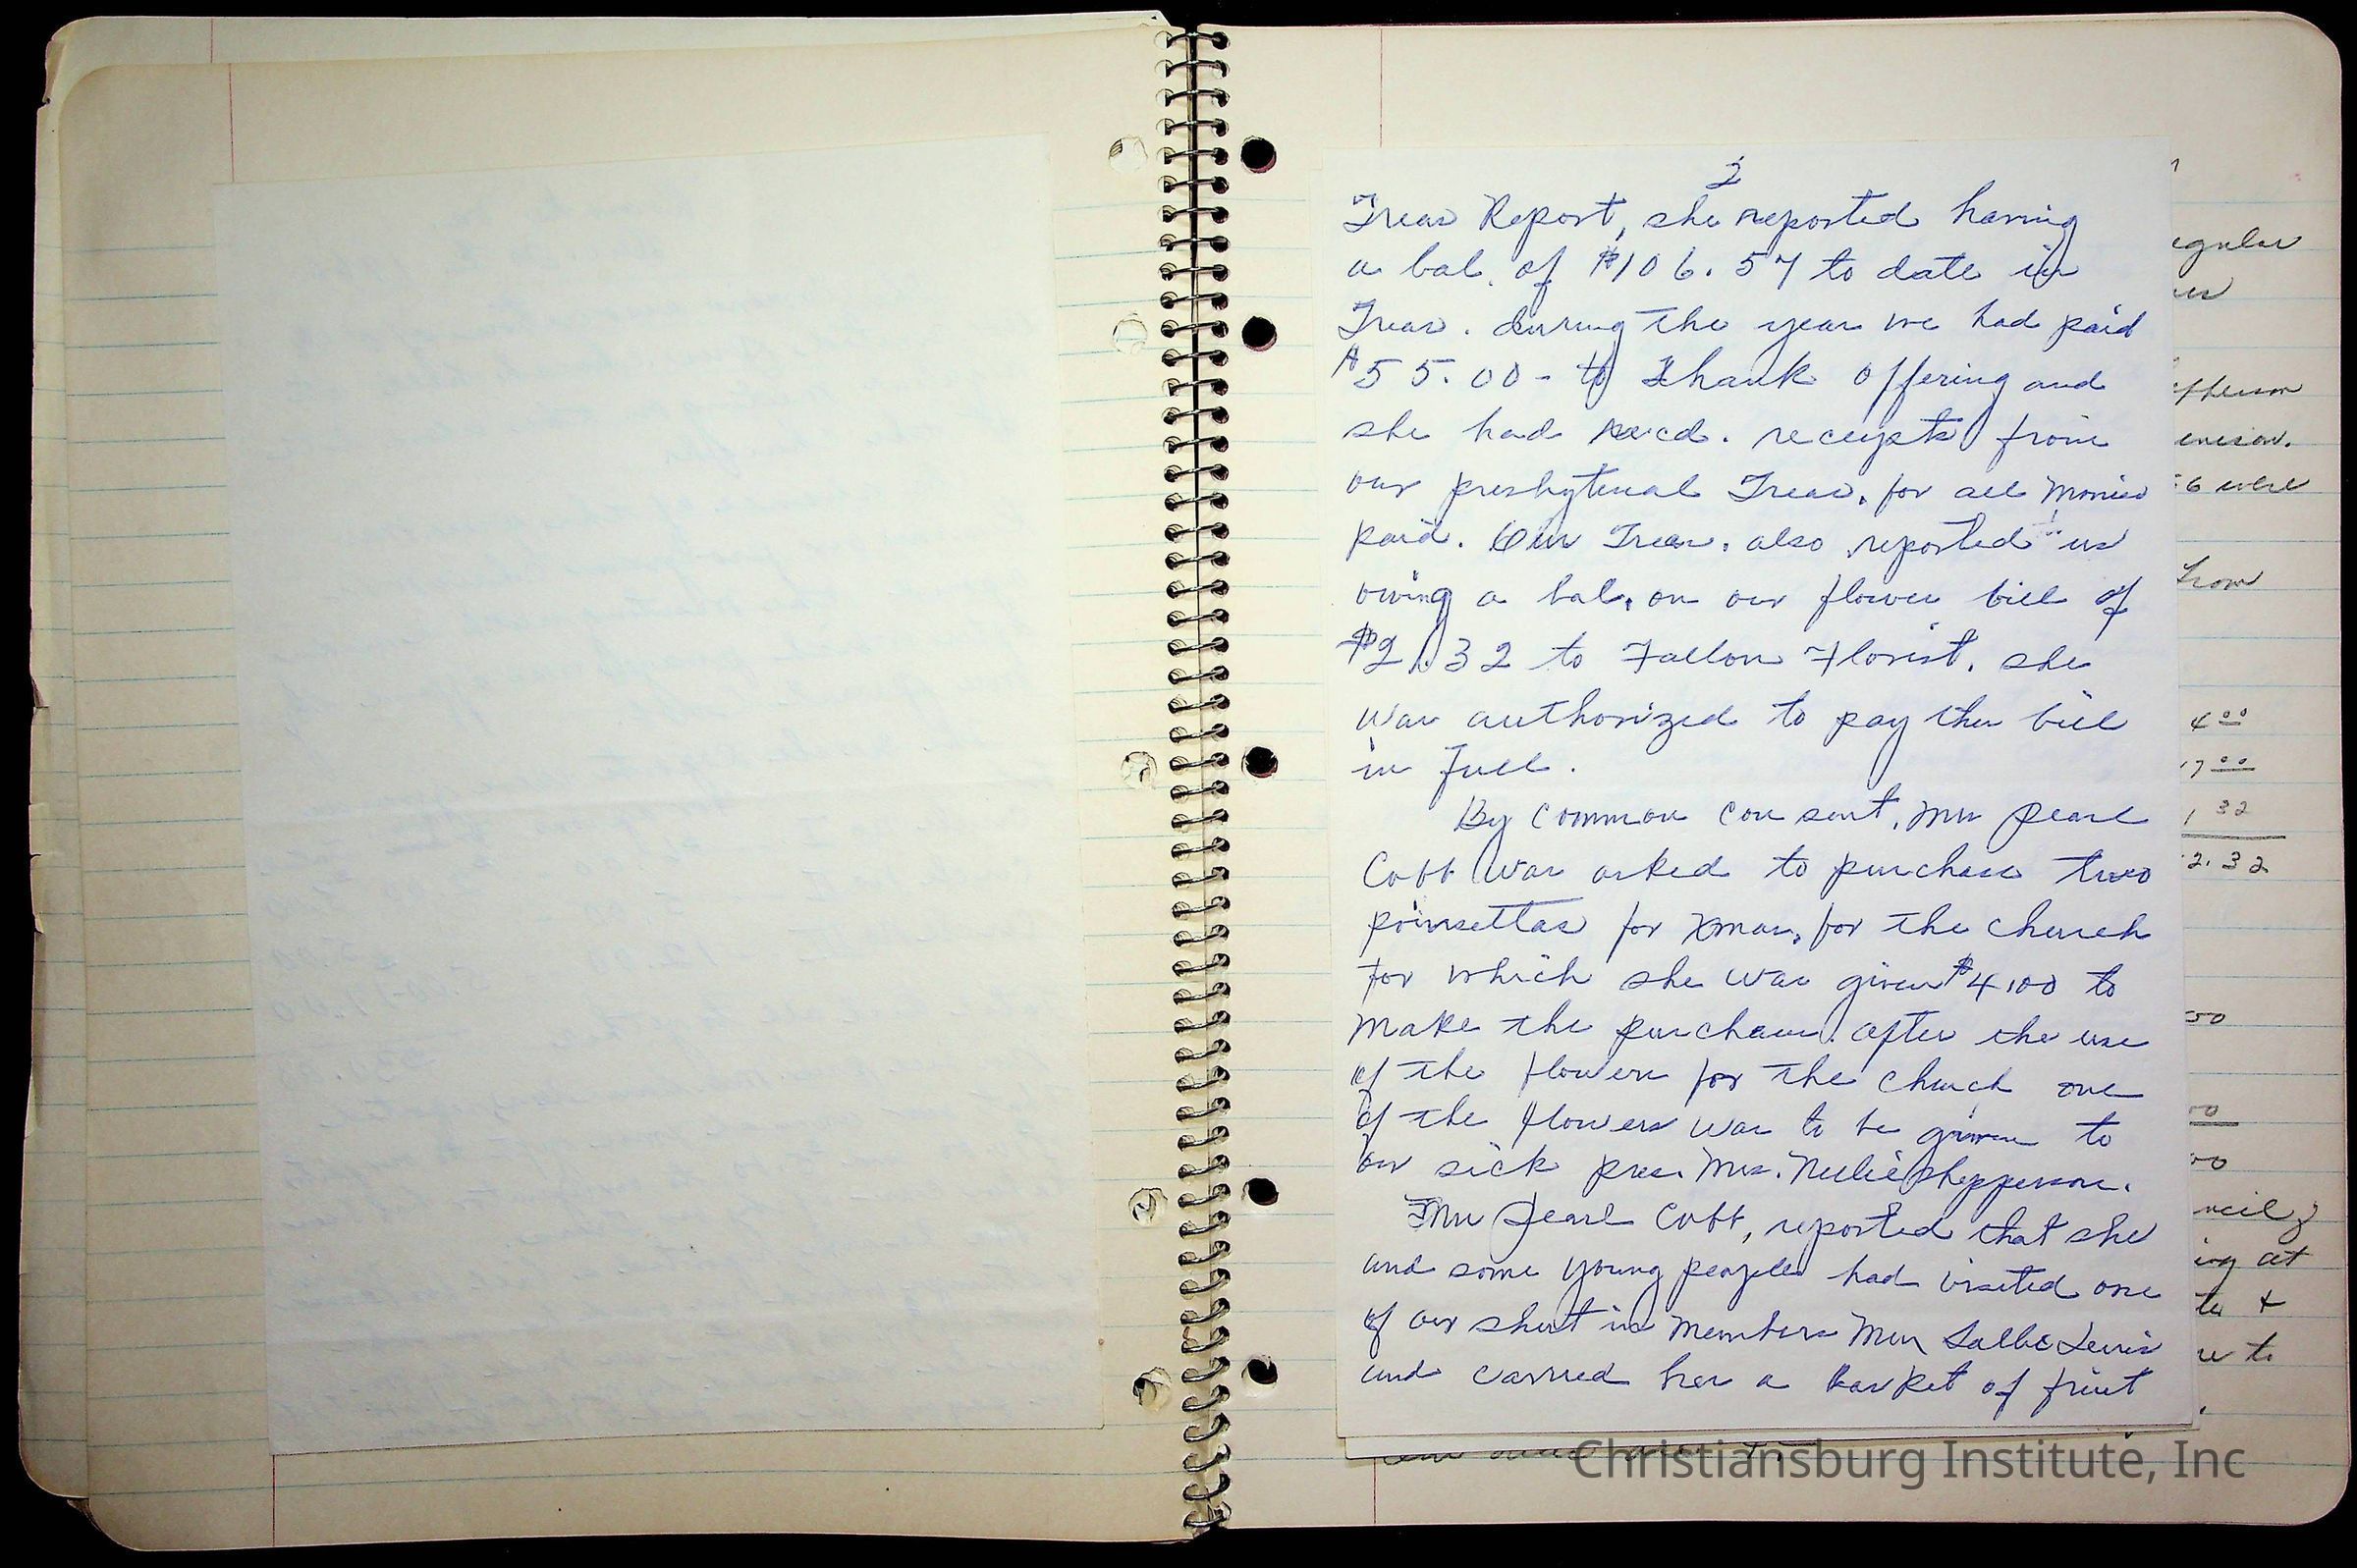 2
Treas Report, she reported having
a bal. of $106.57 to date in
Treas. during the year we had paid
$55.00 - to Thank Offering and
she had recd. receipts from
our presbyterial Treas. for all monies
paid. Our Treas. also reported us
owing a bal. on our flower bill of
$21.32 to Fallon Florist. she
was authorized to pay the bill
in full.
By common consent, Mrs Pearl
Cobb was asked to purchase two
poinsettas for Xmas, for the church
for which she was given $4.00 to
make the purchase. after the use
of the flowers for the church one
of the flowers was to be given to
our sick pres. Mrs. Nellie Shepperson.
Mrs Pearl Cobb, reported that she
and some young people had visited one
of our shut in members Mrs Sallie Lewis
and carried her a basket of fruit
egular
epperson
6 were
from
4 00
17 00
1 32
2.32
50
00
00
ncil
ing at
&
to
Christiansburg Institute, Inc